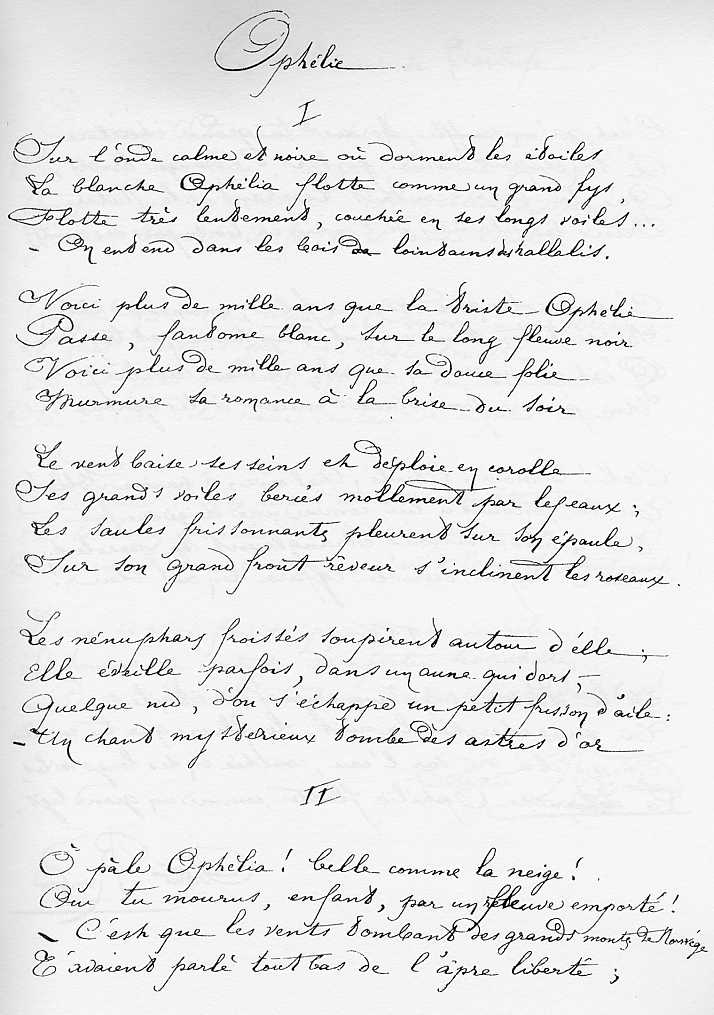 Ophélie
I
Sur l'onde calme et noire où dorment les étoiles
La blanche Ophélia flotte comme un grand lys,
Flotte très lentement, couchée en ses longs voiles...
– On entend dans les bois lointains des hallalis.
Voici plus de mille ans que la triste Ophélie
Passe, fantome blanc, sur le long fleuve noir
Voici plus de mille ans que sa douce folie
Murmure sa romance à la brise du soir
Le vent baise ses seins et déploie en corolle
Ses grands voiles bercés mollement par les eaux ;
Les saules frissonnants pleurent sur son épaule,
Sur son grand front rêveur s'inclinent les roseaux.
Les nénuphars froissés soupirent autour d'elle ;
Elle éveille parfois, dans un aune qui dort, –
Quelque nid, d'où s'échappe un petit frisson d'aile :
– Un chant mystérieux tombe des astres d'or
II
Ô pâle Ophélia ! belle comme la neige !
Oui tu mourus, enfant, par un fleuve emporté !
– C'est que les vents tombant des grands monts de Norvège
T'avaient parlé tout bas de l'âpre liberté ;